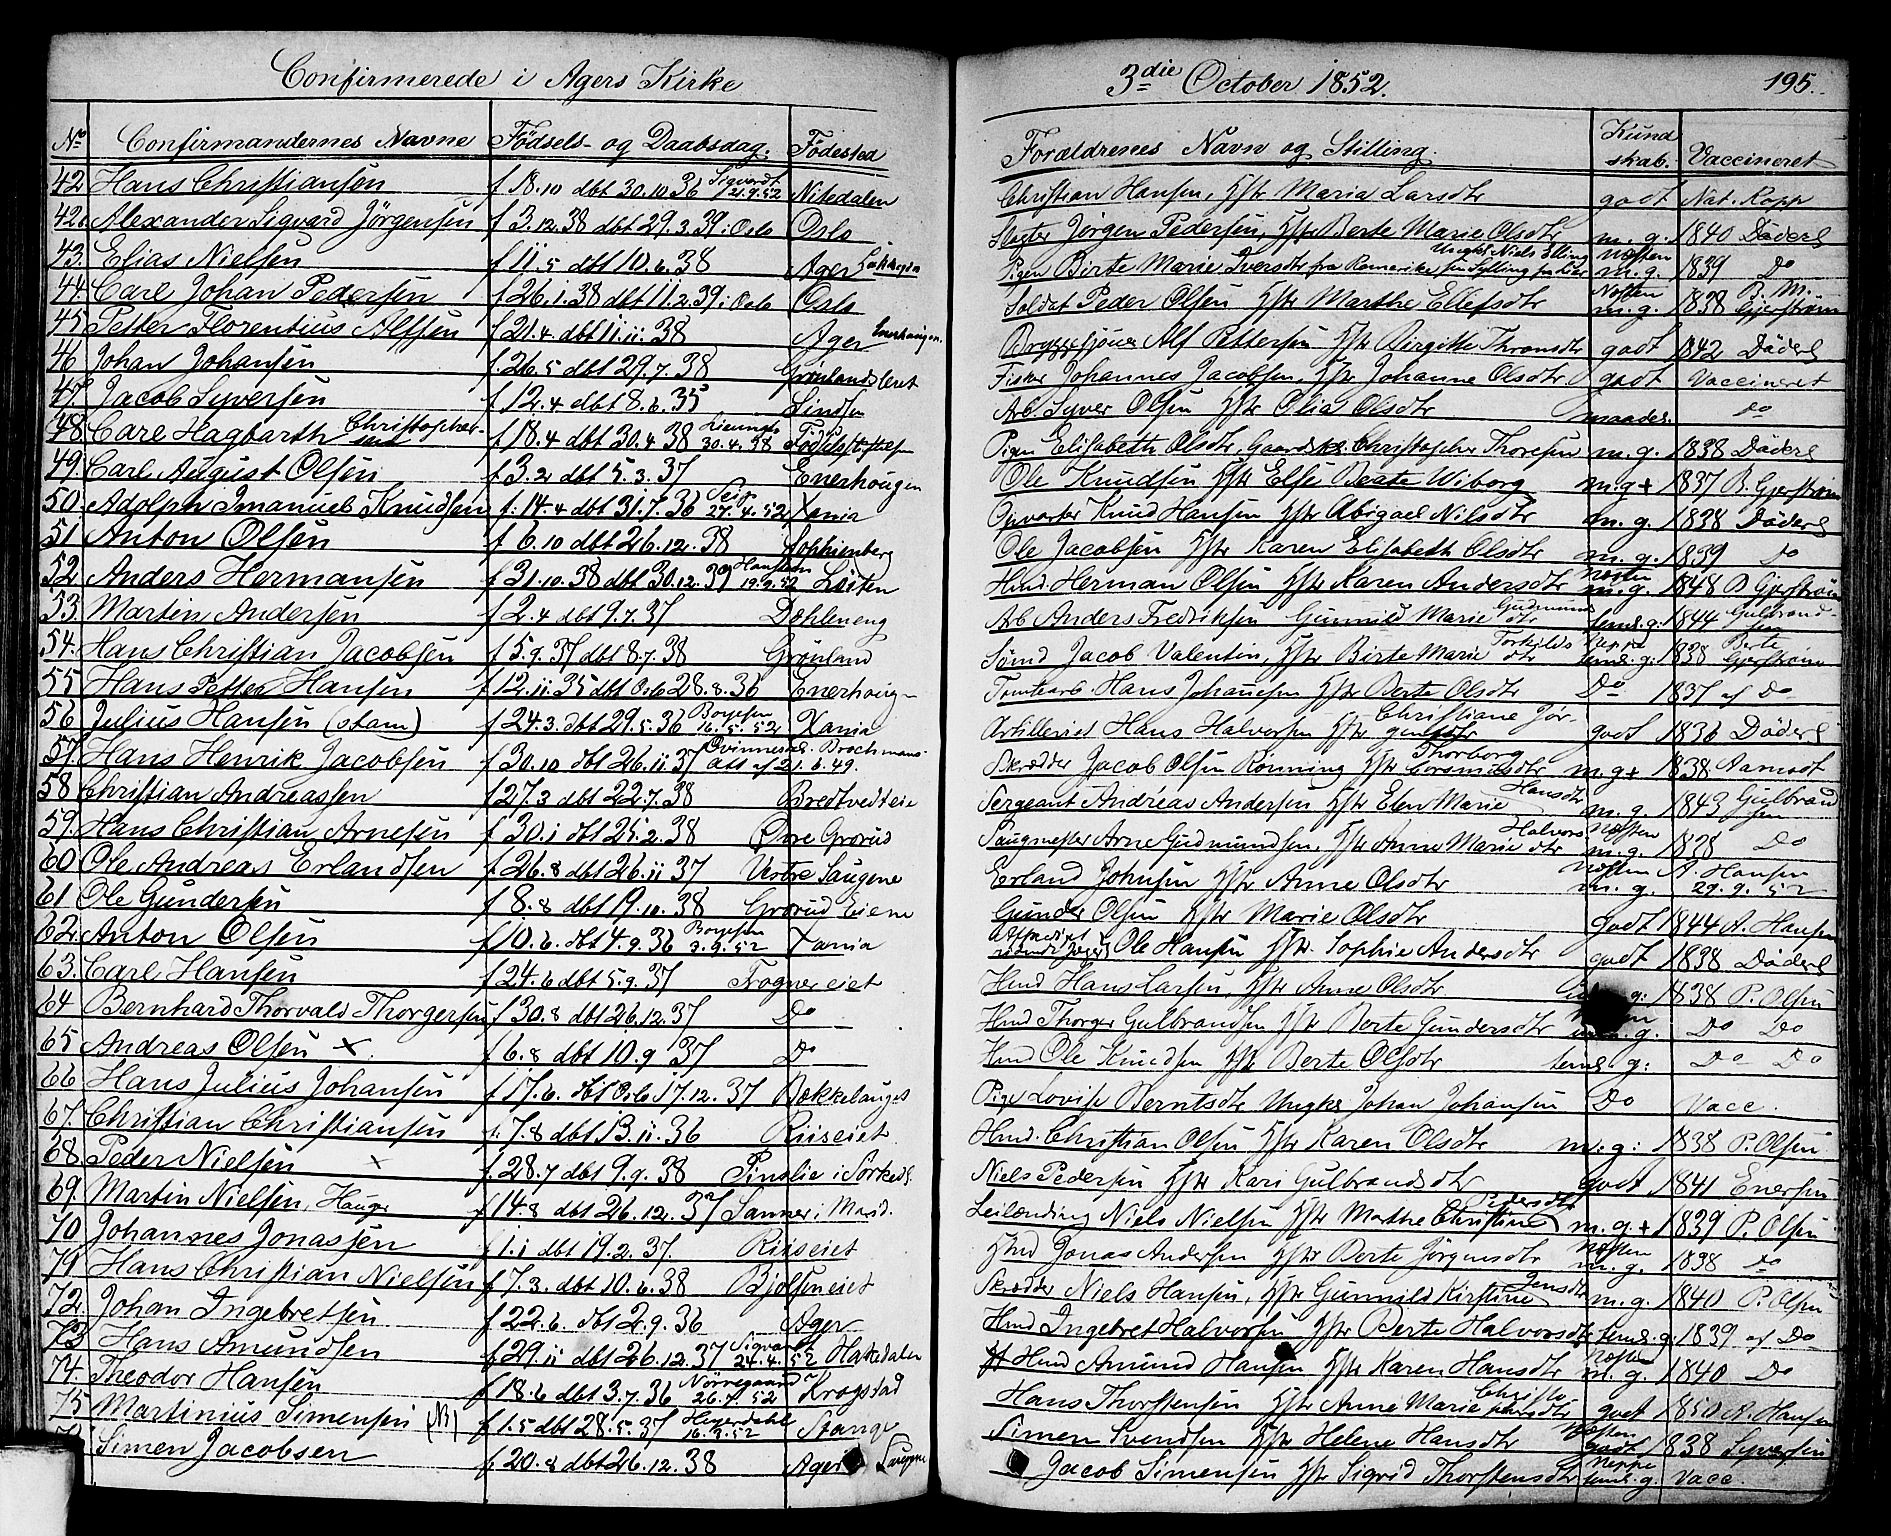 Confirmerede i Agers Kirke
3die October 1852.
195.
No Confirmandernes Navne Födsels- og Daabsdag. Födested
Forældrenes Navn og Stilling. Kundskab. Vaccineret
42 Hans Christiansen f 18.10 dbt 30.10.36 Sigvardt 21.9.52 Nitedalen
Christian Hansen, Hstr Maria Larsdtr godt Nat. Kopp
42b Alexander Sigvard Jörgensen f 3.12.38 dbt 29.3.39 i Oslo Oslo
Jörgen Pedersen, Hstr Berte Marie Olsdtr m.g. 1840 Döderl
43. Elias Nielsen f 11.5 dbt 10.6.38 Ager
Pigen Birte Marie Iversdtr fra Romerike Ungkl Niels Elling Næsten m.g. 1839 Do
44. Carl Johan Pedersen f 26.1.38 dbt 11.2.39 i Oslo Oslo
Soldat Peder Olsen Hstr Marthe Ellefsdtr Næsten m.g. 1838 B. M. Gjerström
45 Petter Florentius Alfsen f 21.4 dbt 11.11.38 Ager Enerhaugen
Bryggesjouer Alf Pettersen Hstr Birgitte Thronsdtr godt 1842 Döderl
46 Johan Johansen f. 26.5 dbt 29.7.38 Grönlandsleret
Fisker Johannes Jacobsen, Hstr Johanne Olsdtr godt Vaccineret
47. Jacob Syversen f 12.4 dbt 8.6.35 Lindsen
Arb Syver Olsen Hstr Olia Olsdtr maadel. do
48. Carl Hagbarth Christophersen f 18.4 dbt 30.4.38 30.4.38 Födselsstiftelsen
Pigen Elisabeth Olsdtr, Gaardskl Christopher Thoresen m.g. 1838 Döderl
49. Carl August Olsen f 3.2 dbt 5.3.37 Enerhougen
Ole Knudsen Hstr Else Beate Wiborg m.g + 1837 B. Gjerström
50. Adolph Imanuel Knudsen f: 14.4 dbt 31.7.36 Seip 27.4.52 Xania
Opvarter Knud Hansen Hstr Abigael Nilsdtr m.g. 1838 Döderl
51 Anton Olsen f 6.10 dbt 26.12.38 Sophienberg
Ole Jacobsen Hstr Karen Elisabeth Olsdtr m.g. 1839 Do
52 Anders Hermansen f 31.10.38 dbt 30.12.39 19.9.52 Löiten
Hmd. Herman Olsen Hstr Karen Andersdtr Næsten m.g. 1848 B Gjerström
53 Martin Andersen f 2.4 dbt 9.7.37 Dæhleneng
Arb Anders Fredriksen Gunnild Marie Gudmunds dtr temel. g: 1844 Gulbrandsen
54. Hans Christian Jacobsen f 5.9.37 dbt 8.7.38 Grönland
Sömd Jacob Valentin, Hstr Birte Marie Torkilds dtr Neppe temel. g: 1838 Berte Gjerström
55 Hans Petter Hansen f 12.11.35 dbt Oslo 28.8.36 Enerhougen
Tomtearb. Hans Johansen Hstr Berte Olsdtr Do 1837 af Do
56 Julius Hansen (stam) f 24.3. dbt 29.5.36 Boyesen 16.5.52 Xania
Artillerist Hans Halvorsen Hstr Christiane Jörgensdtr godt 1836 Döderl
57. Hans Henrik Jacobsen f 30.10 dbt 26.11.37 Qvinnesdl. Brochmans Att af 21.6.49.
Skrædder Jacob Olsen Rönning Hstr Thorborg m.g + 1838 Aamodt
58 Christian Andreassen f 27.3 dbt 22.7.38 Bredtvedteie
Sergeant Andreas Andersen Hstr Elen Marie Hansdtr m.g. 1843 Gulbrandsen
59. Hans Christian Arnesen f 30.1 dbt 25.2.38 Övre Grorud
Saugmester Arne Gudmundsen, Hstr Anne Marie Halvorsdtr Næsten m.g. 1828 Do
60 Ole Andreas Erlandsen f 26.8 dbt 26.11.37 Vestre Saugene
Erland Johnsen Hstr Anne Olsdtr Næsten m.g. A. Hansen 29.9.52
61 Ole Gundersen f 8.8 dbt 19.10.38 Grorud Eiene
Gunder Olsen Hstr Marie Olsdtr godt 1844 A. Hansen
62. Anton Olsen f 10.6. dbt 4.9.36 Boyesen 9.9.52 Xania
Afskediget Ole Hansen Hstr. Sophie Andersdtr godt 1838 Döderl
63. Carl Hansen f 24.6 dbt 5.9.37 Frogner eiet
Hmd Hans Larsen, Hstr Anne Olsdtr g: 1838 P. Olsen
64 Bernhard Thorvald Thorgersen f 30.8 dbt 26.12.37 Do
Hmd Thorger Gulbrandsen Hstr Berte Gundersdtr m.g. Do Do
65 Andreas Olsen x f 6.8 dbt 10.9 37 Do
Hmd Ole Knudsen Hstr Berte Olsdtr temel. g: Do Do
66 Hans Julius Johansen f 17.6. dbt Oslo 17.12.37 Bækkelauget
Pige Lovise Berntsdtr Ungkl Johan Johansen Do Vacc.
67. Christian Christiansen f. 7.8 dbt 13.11.36 Riiseiet
Hmd. Christian Olsen Hstr Karen Olsdtr m.g: 1838 P. Olsen
68. Peder Nielsen x f. 28.7 dbt 9.9.38 Pinslie i Sörkedl.
Niels Pedersen Hstr Kari Gulbrandsdtr godt 1841 Enersen
69. Martin Nielsen, Hauge f 14.8 dbt 26.12.37 Sanner i Marid.
Leilænding Niels Nielsen Hstr Marthe Christine Pedersdtr m.g + 1839 P. Olsen
70 Johannes Jonassen f 1.1 dbt 19.2.37. Riiseiet
Hmd Jonas Andersen Hstr Berte Jörgensdtr Næsten m.g. 1838 do
71 Hans Christian Nielsen f 7.3. dbt 10.6.38 Bjölseneiet
Skrædder Niels Hansen, Hstr Gunnild Kirstine Jensdtr m.g. 1840 P. Olsen
72. Johan Ingebretsen f 22.6. dbt 2.9.36 Ager
Hmd Ingebret Halvorsen Hstr Berte Halvorsdtr temel. g: 1839 af Do
73 Hans Amundsen f 29.11 dbt 26.12.37 Sigvardt 24.4.52 Hakedalen
Hmd Amund Hansen Hstr Karen Hansdtr Næsten m.g. 1840 Do
74. Theodor Hansen f 18.6 dbt 3.7.36 Nörregaard 26.7.52 Krogstad
Hans Thorstensen Hstr Anne Marie Christophersdtr godt 1850 A. Hansen
75 Martinius Simensen (NB) f 1.5 dbt 28.5.37 Heyerdahl 16.9.52 Stange
Simen Svendsen Hstr Helene Hansdtr Næsten godt 1838 Syversen
76. Simen Jacobsen f. 20.8 dbt 26.12.38 Ager Saugene
Jacob Simensen Hstr Sigrid Thorstensdtr Neppe temel. g. Vacc.